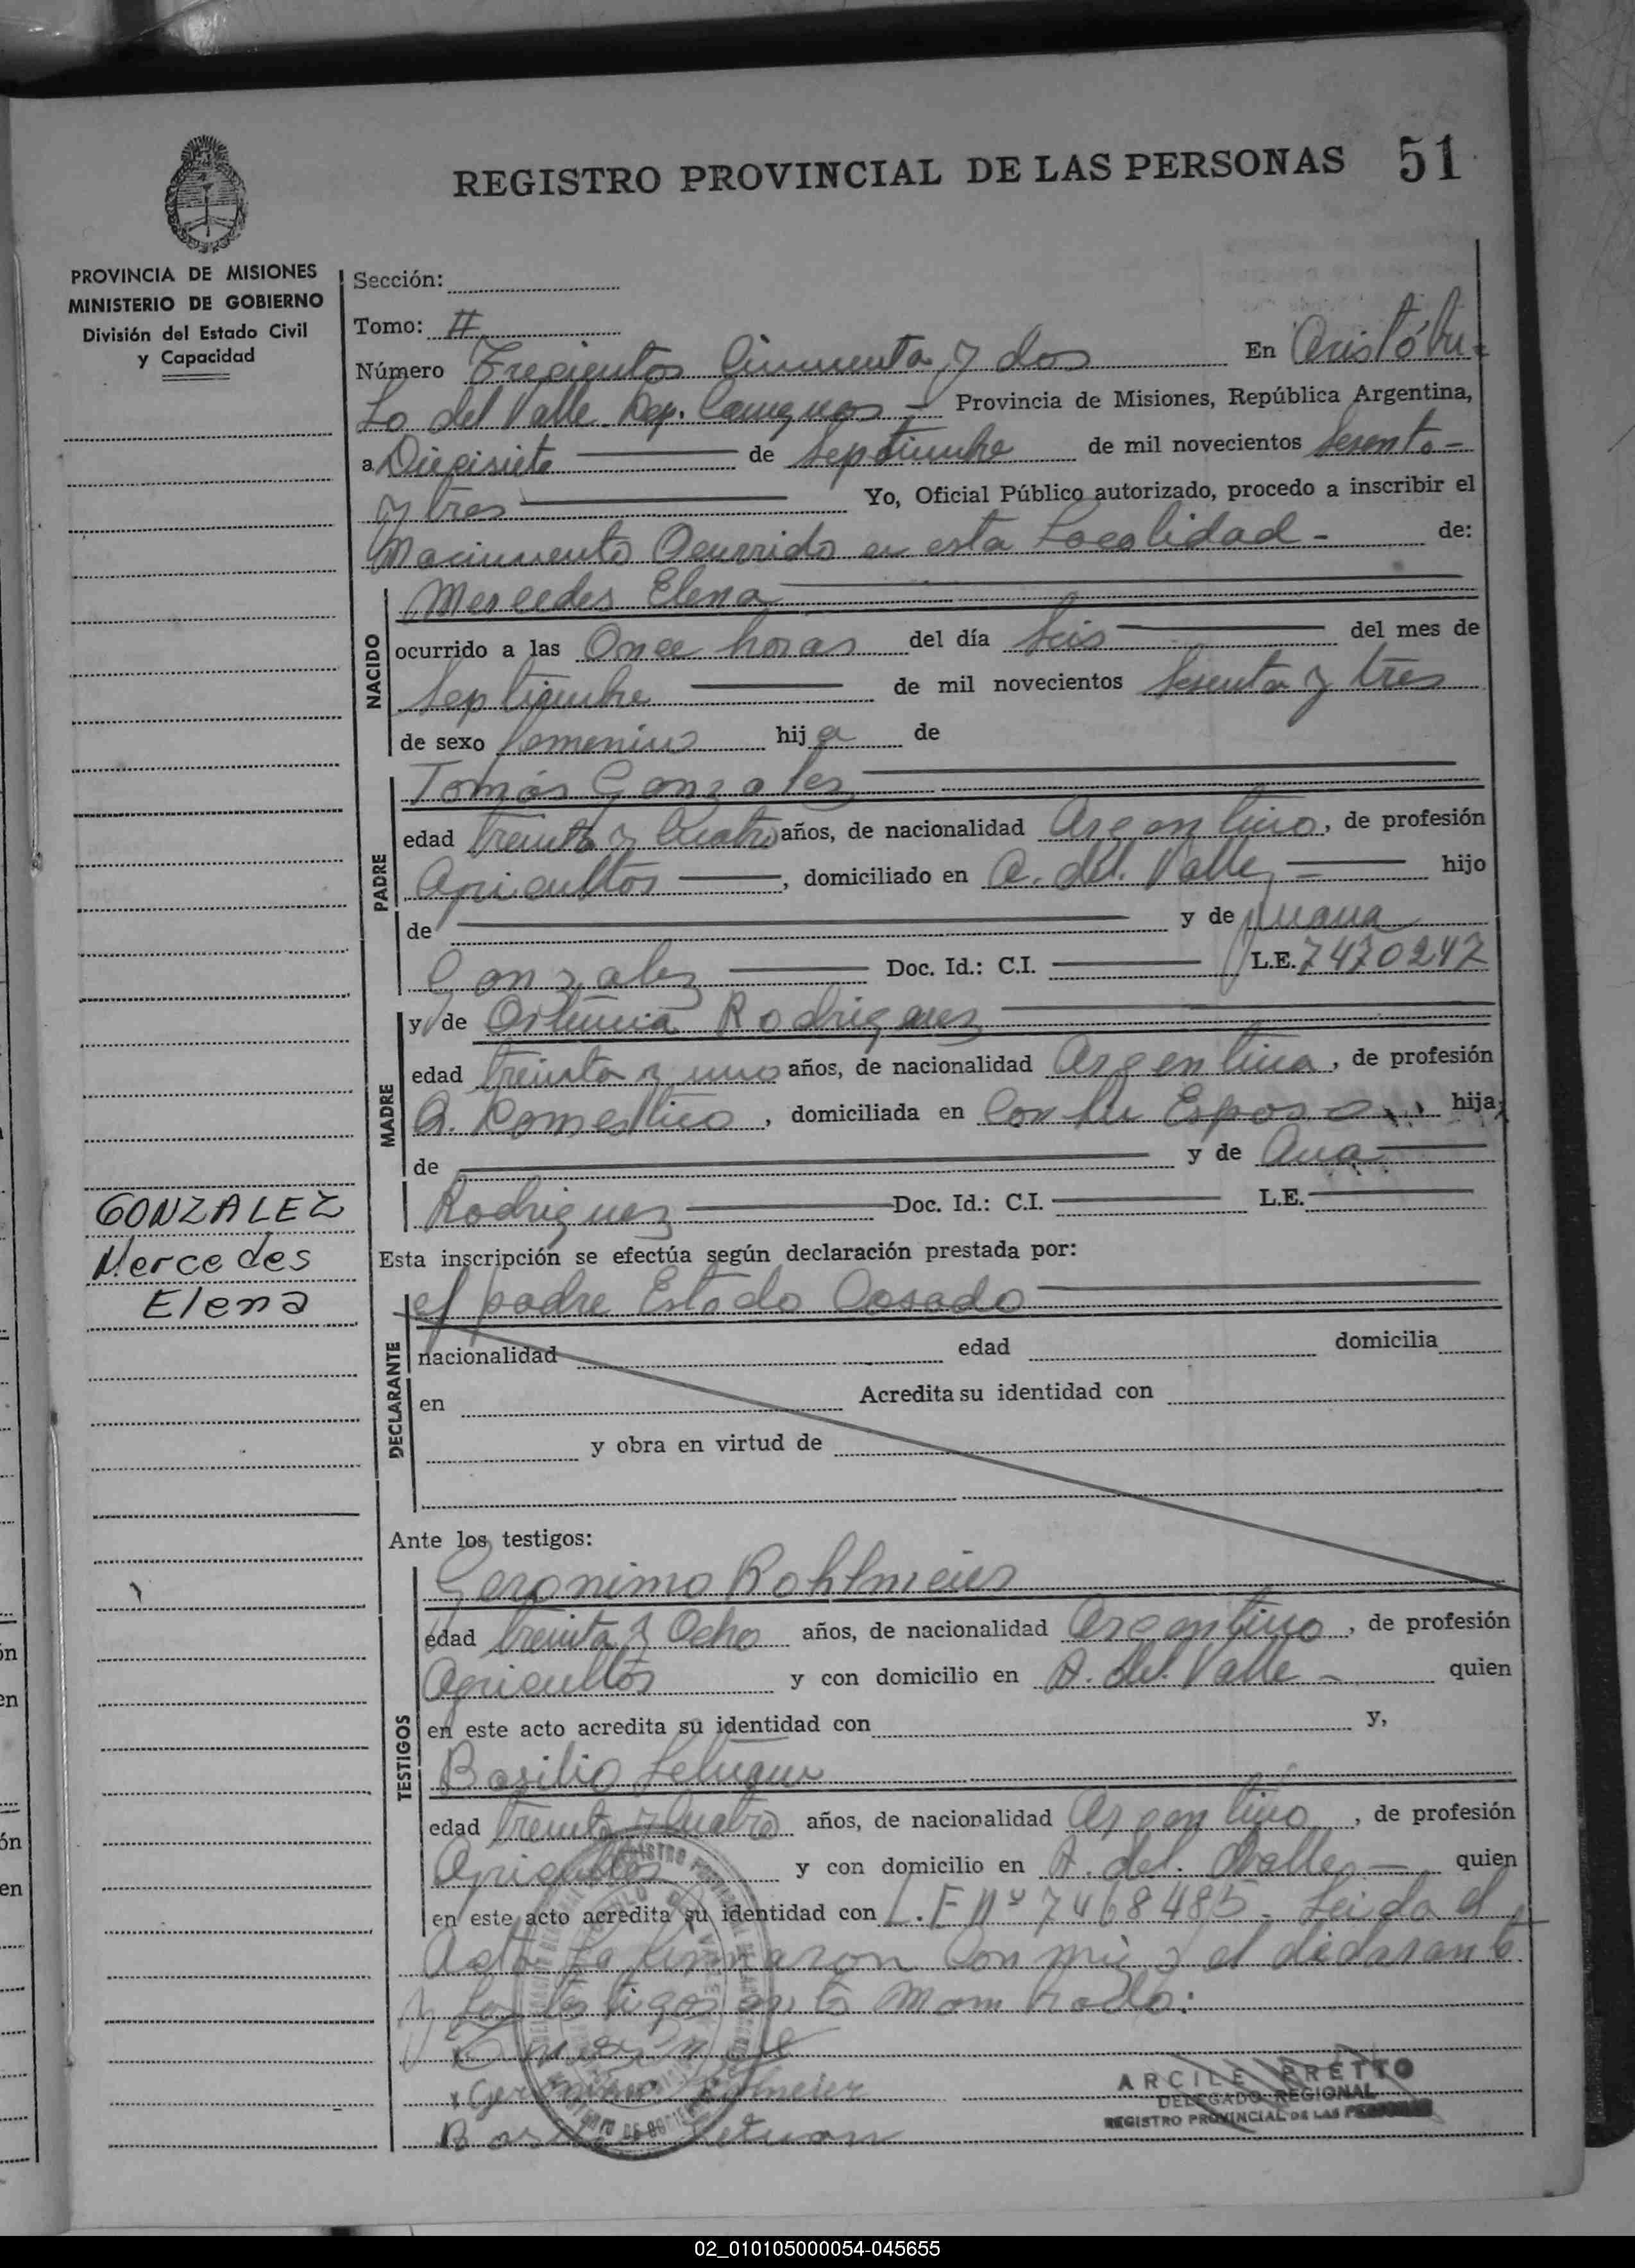 REGISTRO PROVINCIAL DE LAS PERSONAS 51
PROVINCIA DE MISIONES
MINISTERIO DE GOBIERNO
División del Estado Civil
y Capacidad
Sección:
Tomo: II
Número Trecientos Cincuenta y dos En Aristóbu-
Lo del Valle. Dep. Caingúas - Provincia de Misiones, República Argentina,
a Diecisiete de Septiembre de mil novecientos Sesenta-
y tres Yo, Oficial Público autorizado, procedo a inscribir el
Nacimiento Ocurrido en esta Localidad - de:
NACIDO
Mercedes Elena
ocurrido a las Once horas del día Seis del mes de
Septiembre de mil novecientos Sesenta y tres
de sexo femenino hija de
PADRE
Tomás Gonzalez
edad treinta y Cuatro años, de nacionalidad Argentino, de profesión
Agricultor, domiciliado en A. del. Valle hijo
de y de Juana
Gonzalez Doc. Id.: C.I. L.E. 7470247
MADRE
y de Ortencia Rodriguez
edad treinta y uno años, de nacionalidad Argentina, de profesión
Q. Domestico, domiciliada en Con su Esposo hija
de y de Ana
Rodriguez Doc. Id.: C.I. L.E.
GONZALEZ
Mercedes
Elena
Esta inscripción se efectúa según declaración prestada por:
DECLARANTE
el padre Estado Casado
nacionalidad edad domicilia
en Acredita su identidad con
y obra en virtud de
Ante los testigos:
TESTIGOS
Geronimo Rohlmeier
edad treinta y Ocho años, de nacionalidad Argentino, de profesión
Agricultor y con domicilio en A. del. Valle - quien
en este acto acredita su identidad con y,
Basilio
edad treinta y Cuatro años, de nacionalidad Argentino, de profesión
Agricultor y con domicilio en A. del. Valle - quien
en este acto acredita su identidad con L.E Nº 7468485 - Leida el
Acta La firmaron Con mi y el declarante
y Los testigos ante nombrado:
Geronimo
Basilio
ARCILE PRETTO
DELEGADO REGIONAL
REGISTRO PROVINCIAL DE LAS PERSONAS
02_010105000054-045655